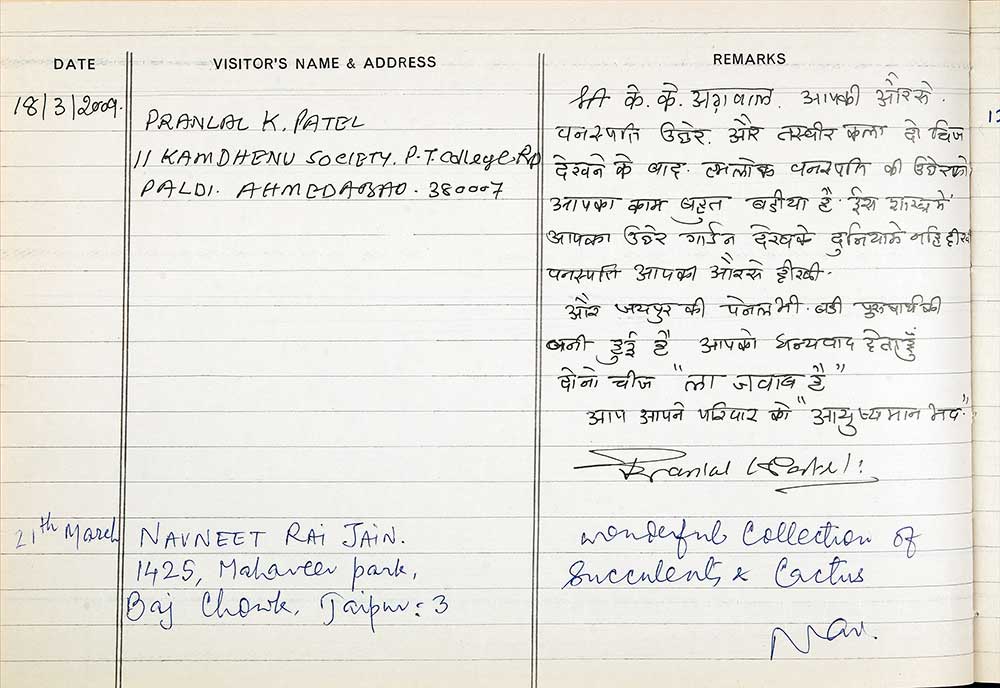 DATE
VISITOR'S NAME & ADDRESS
REMARKS
18/3/2009.
PRANLAL K. PATEL
11 KAMDHENU SOCIETY. P.T. College Rd
PALDI. AHMEDABAD. 380007
के. के. अग्रवाल. आपकी औरसे.
वनस्पति उछेर. और तस्वीर कला दो चिज
देखने के बाद. वनस्पति की उछेरको
आपका काम बहुत बडीया है. ईस शास्त्रमें
आपका उछेर गार्डन देखके दुनियामे नहि
वनस्पति आपकी औरसे
और जयपुर की पेनल भी. बडी पुरुषार्थकी
बनी हुई है आपको धन्यवाद देता हुँ
दोनो चीज "ला जवाब है"
आप आपने परिवार को "आयुष्यमान भव."
Pranlal K Patel
21th March
NAVNEET RAI JAIN.
1425, Mahaveer park,
Baj Chowk, Jaipur: 3
wonderful Collection of
Succulents & Cactus
Nav.